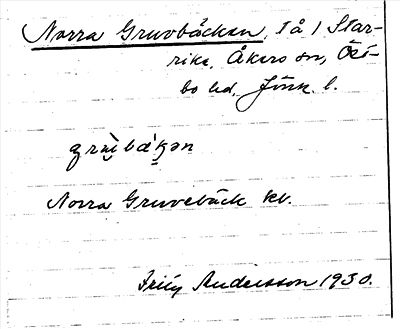 Norra Gruvbäcken, tå i Star-
rike, Åkers sn, Öst-
bo hd, Jönk. l.
Norra Gruvebäck kb.
Fritz Andersson 1930.